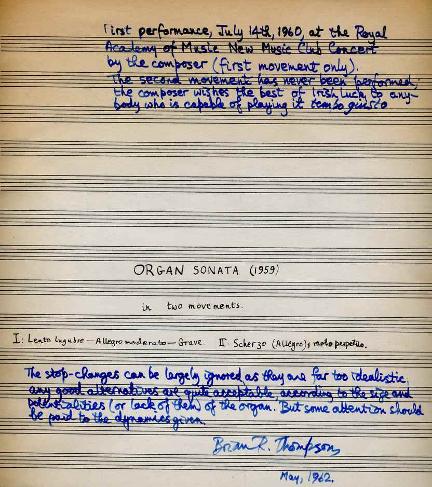 First performance, July 14th, 1960, at the Royal
Academy of Music New Music Club Concert
by the composer (first movement only).
The second movement has never been performed;
the composer wishes the best of Irish luck to any-
body who is capable of playing it tempo giusto
ORGAN SONATA (1959)
in two movements.
I: Lento lugubre - Allegro moderato - Grave II: Scherzo (Allegro); moto perpetuo.
The stop-changes can be largely ignored as they are far too idealistic;
any good alternatives are quite acceptable, according to the size and
potentialities (or lack of them) of the organ. But some attention should
be paid to the dynamics given.
Brian R. Thompson
May, 1962.